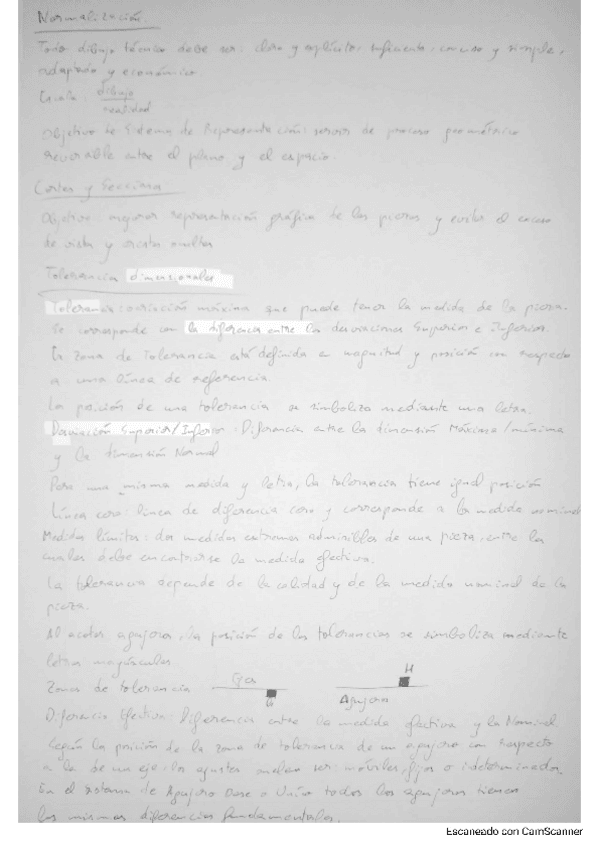 Normalización
Todo dibujo técnico debe ser: claro y explícito, suficiente, conciso y simple,
adaptado y económico
Escala: dibujo
realidad
Objetivo de Sistema de Representación: de proceso geométrico
reversible entre el plano y el espacio.
Cortes y Secciones
Objetivo: mejorar representación gráfica de las piezas y evitar el exceso
de vistas y ocultas
Tolerancia dimensionales
Tolerancia: variación máxima que puede tener la medida de la pieza.
Se corresponde con la diferencia entre las desviaciones Superior e Inferior.
La zona de tolerancia está definida en magnitud y posición con respecto
a una línea de referencia.
La posición de una tolerancia se simboliza mediante una letra.
Desviación Superior/Inferior: Diferencia entre la dimensión Máxima/mínima
y la dimensión Normal
Para una misma medida y letra, la tolerancia tiene igual posición
Línea cero: línea de diferencia cero y corresponde a la medida nominal
Medidas límites: dos medidas extremas admisibles de una pieza, entre las
cuales debe encontrarse la medida efectiva.
La tolerancia depende de la calidad y de la medida nominal de la
pieza.
Al acotar agujeros, la posición de las tolerancias se simboliza mediante
letras mayúsculas
Zonas de tolerancia
H
Agujeros
Diferencia Efectiva: Diferencia entre la medida efectiva y la Nominal.
Según la posición de la zona de tolerancia de un agujero con respecto
a la de un eje, los ajustes pueden ser: móviles, fijos o indeterminados.
En el sistema de Agujero Base o Único todos los agujeros tienen
las mismas diferencias fundamentales.
Escaneado con CamScanner